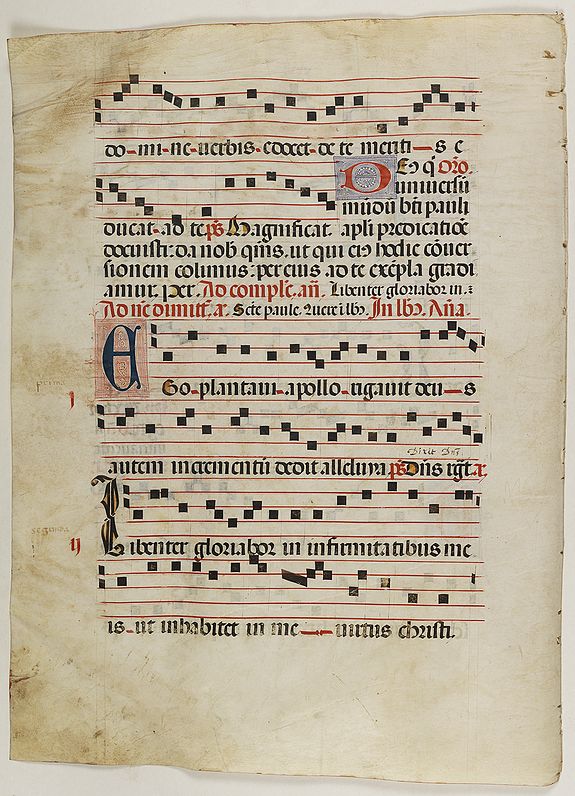 do-mi-ne-verbis-edocet-de te meriti-s e
Deus qui Oro.
universū
mūdū bti pauli
ducat-ad te ps Magnificat. apli predicatiōe
docuisti: da nob qms. ut qui eiꝰ hodie cōver
sionem colimus: per eius ad te exēpla gradi
amur. per. Ad complet. añ. Libenter gloriabor in.
Ad nūc dimitt. a. Scte paule. Quere ī lbꝛo. In lbꝛo. Aña.
prima
EGo-plantavi-apollo-rigavit deu-s
I
Dixit Dns
autem incrementū dedit alleluya ps Dñs rgt a.
segunda
Libenter gloriabor in infirmitatibus me
II
is-ut inhabitet in me-virtus christi.